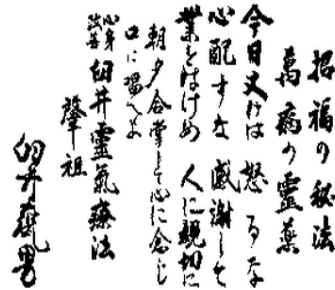 招福の秘法
萬病の霊薬
今日丈けは 怒るな
心配すな 感謝して
業をはけめ 人に親切に
朝夕合掌して心に念じ
口に唱へよ
心身改善 臼井靈氣療法
肇祖
臼井甕男